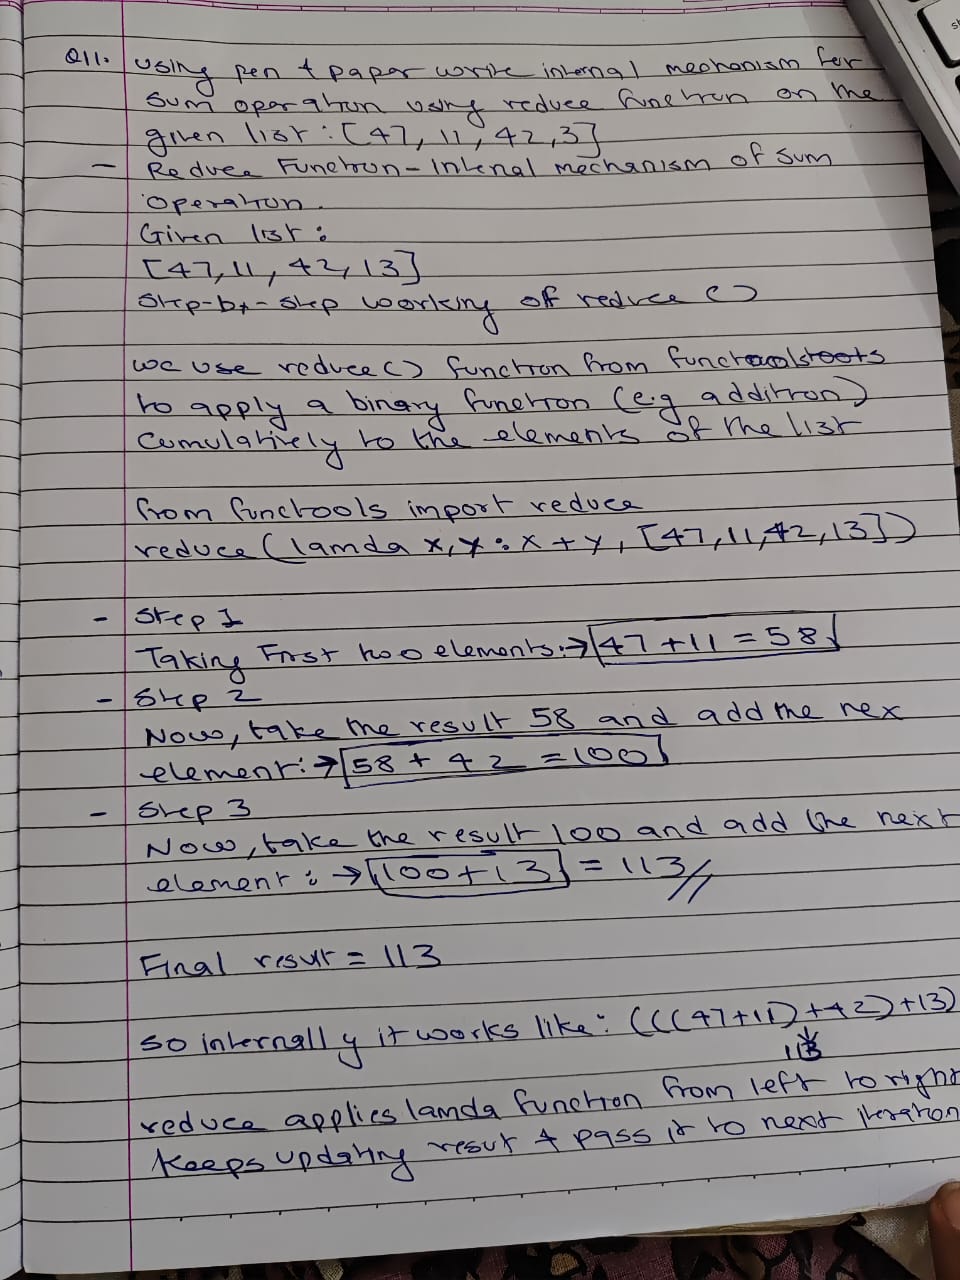 Q11. Using pen & paper write internal mechanism for
sum operation using reduce function on the
given list : [47, 11, 42, 3]
- Reduce Function - Intenal mechanism of sum
operation.
Given list :
[47, 11, 42, 13]
Step-by-step working of reduce ()
we use reduce() function from
to apply a binary function (e.g addition)
cumulatively to the elements of the list
from functools import reduce
reduce (lamda x, y : x + y, [47, 11, 42, 13])
- Step 1
Taking First two elements :→ 47 + 11 = 58
- Step 2
Now, take the result 58 and add the nex
element :→ 58 + 42 = 100
- Step 3
Now, take the result 100 and add the next
element : → 100 + 13 = 113 //
Final result = 113
so internally it works like : (((47+11)+42)+13)
113
reduce applies lamda function from left to right
Keeps updating result & pass it to next iteration